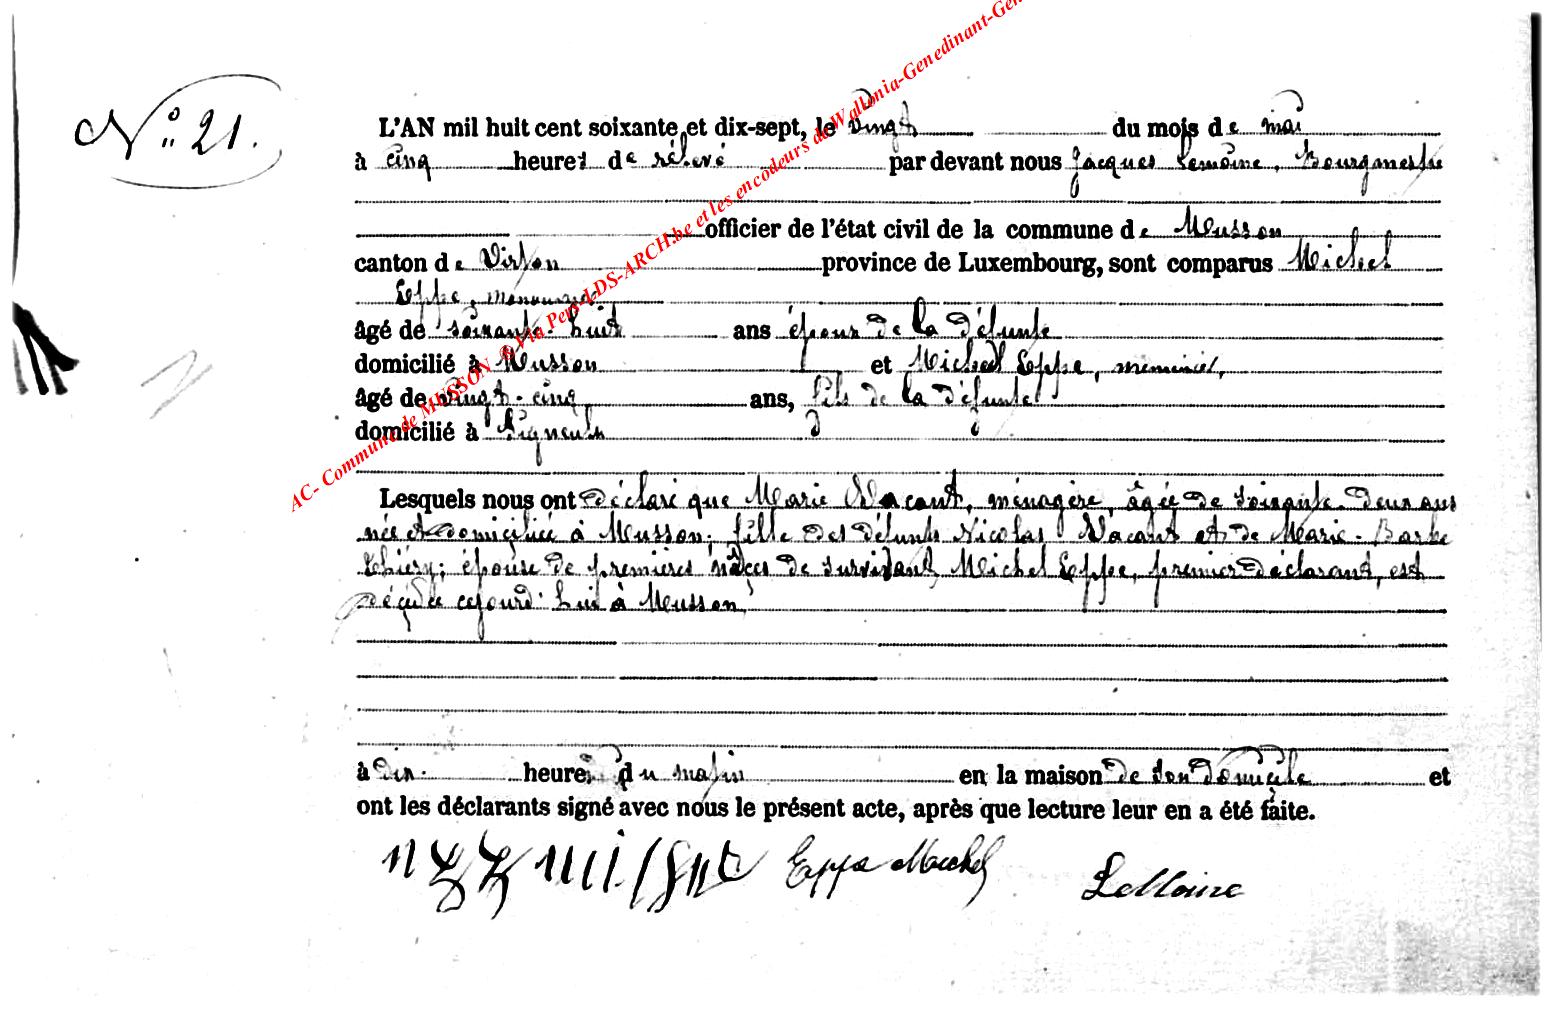 N° 21.
L'AN mil huit cent soixante et dix-sept, le vingt du mois de mai
à cinq heures de rélevé par devant nous Jacques Lemoine, Bourgmestre
officier de l'état civil de la commune de Musson
canton de Virton province de Luxembourg, sont comparus Michel
Eppe, manouvrier
âgé de soixante-huit ans époux de la défunte
domicilié à Musson et Michel Eppe, menuisier,
âgé de vingt-cinq ans, fils de la défunte
domicilié à Signeulx
Lesquels nous ont déclaré que Marie Vacant, ménagère, âgée de soixante-deux ans
née et domiciliée à Musson; fille des défunts Nicolas Vacant et de Marie-Barbe
Thiéry; épouse de premières nôces de survivant, Michel Eppe, premier déclarant, est
décédée cejourd'hui à Musson,
à dix heures du matin en la maison de son domicile et
ont les déclarants signé avec nous le présent acte, après que lecture leur en a été faite.
Eppe Michel
LeMoine
AC- Commune de MUSSON ® Via Pers-LDS-ARCH.be et les encodeurs de Wallonia-Genedinant-Gen